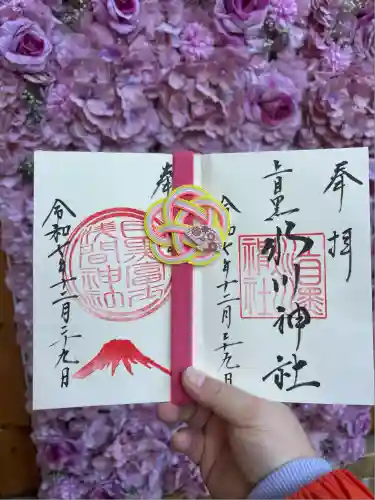 奉拝
上目黒
氷川神社
令和七年十二月二十九日
奉
目黒富士
浅間神社
令和七年十二月二十九日